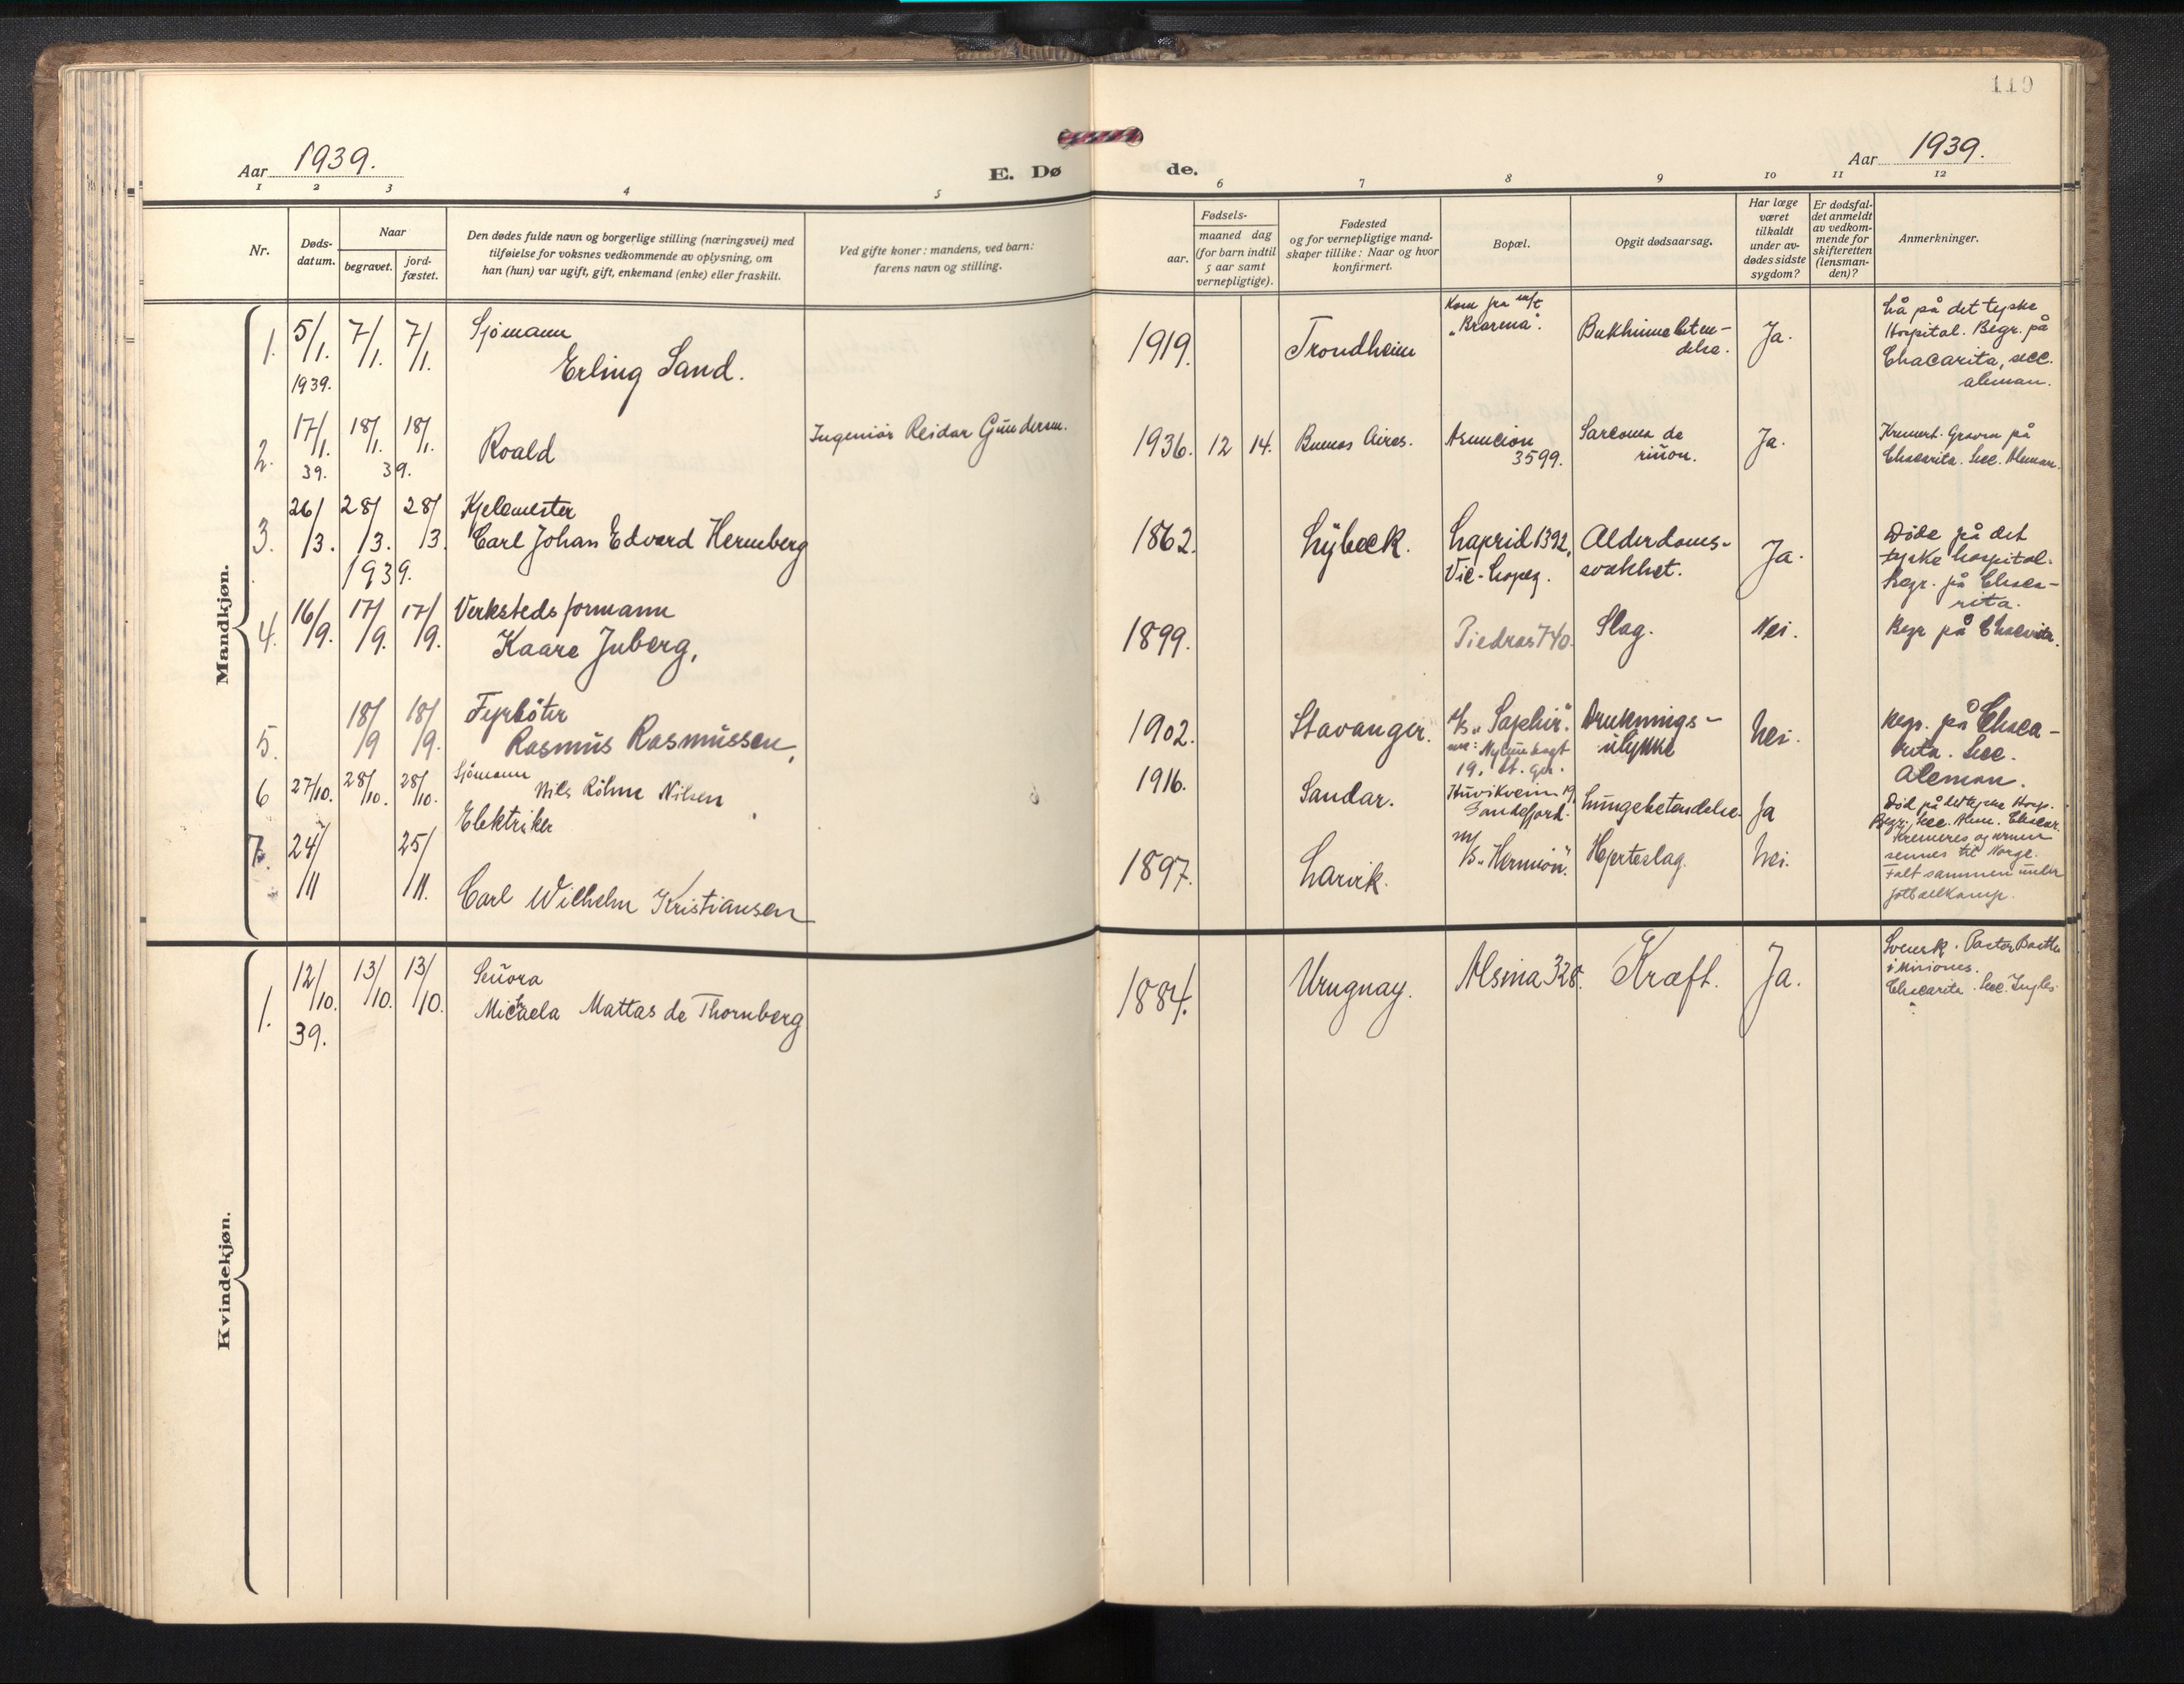 119
Aar 1939.
E. Dø de.
Aar 1939.
1 2 3 4 5 6 7 8 9 10 11 12
Nr.
Døds-
datum.
Naar
begravet.
jord-
fæstet.
Den dødes fulde navn og borgerlige stilling (næringsvei) med
tilføielse for voksnes vedkommende av oplysning, om
han (hun) var ugift, gift, enkemand (enke) eller fraskilt.
Ved gifte koner: mandens, ved barn:
farens navn og stilling.
Fødsels-
aar.
maaned dag
(for barn indtil
5 aar samt
vernepligtige).
Fødested
og for vernepligtige mand-
skaper tillike: Naar og hvor
konfirmert.
Bopæl.
Opgit dødsaarsag.
Har læge
været
tilkaldt
under av-
dødes sidste
sygdom?
Er dødsfal-
det anmeldt
av vedkom-
mende for
skifteretten
(lensman-
den)?
Anmerkninger.
Mandkjøn.
1. 5/1. 1939. 7/1. 7/1.
Sjømann
Erling Sand.
1919. Trondheim
Kom fra m/t
"Brarena".
Bukhinnebeten-
delse.
Ja.
Lå på det tyske
Hospital. Begr. på
Chacarita, secc.
aleman.
2. 17/1. 39. 18/1. 18/1. 39.
Roald
Ingeniør Reidar Gundersen.
1936. 12 14. Buenos Aires.
Asuncion
3599.
Sarcoma de
riñon.
Ja.
Kremert. Graven på
Chacarita. Secc. Aleman.
3. 26/3. 28/3. 28/3. 1939.
Kjelemester
Carl Johan Edvard Hermberg
1862. Lübeck.
Laprid 1392,
Vic-Lopez.
Alderdoms-
svakhet.
Ja.
Døde på det
tyske hospital.
Begr. på Chaca-
rita.
4. 16/9. 17/9. 17/9.
Verkstedsformann
Kaare Juberg,
1899.
Piedras 740.
Slag.
Nei.
Begr på Chacarita.
5. 18/9 18/9.
Fyrbøter
Rasmus Rasmussen,
1902. Stavanger.
s/s. "Saphir".
19.
Druknings-
ulykke
Nei.
Begr. på Chaca-
rita. Secc.
Aleman.
6 27/10. 28/10. 28/10.
Sjømann
Nils Röhne Nilsen
1916. Sandar.
Huvikveien 19,
Sandefjord.
Lungebetendelse.
Ja
Død på det tyske Hosp.
Begr. Secc. Alem. Chacar.
7. 24/11 25/11.
Elektriker
Carl Wilhelm Kristiansen
1897. Larvik.
m/s. "Hermion".
Hjerteslag.
Nei.
Kremeres og urnen
sennes til Norge.
Falt sammen under
fotballkamp.
Kvindekjøn.
1. 12/10. 39. 13/10. 13/10.
Señora
Michaela Mattas de Thornberg
1884. Uruguay.
Alsina 328.
Kræft.
Ja.
Svensk. Pastor
i Misiones.
Chacarita. Secc. Ingles.